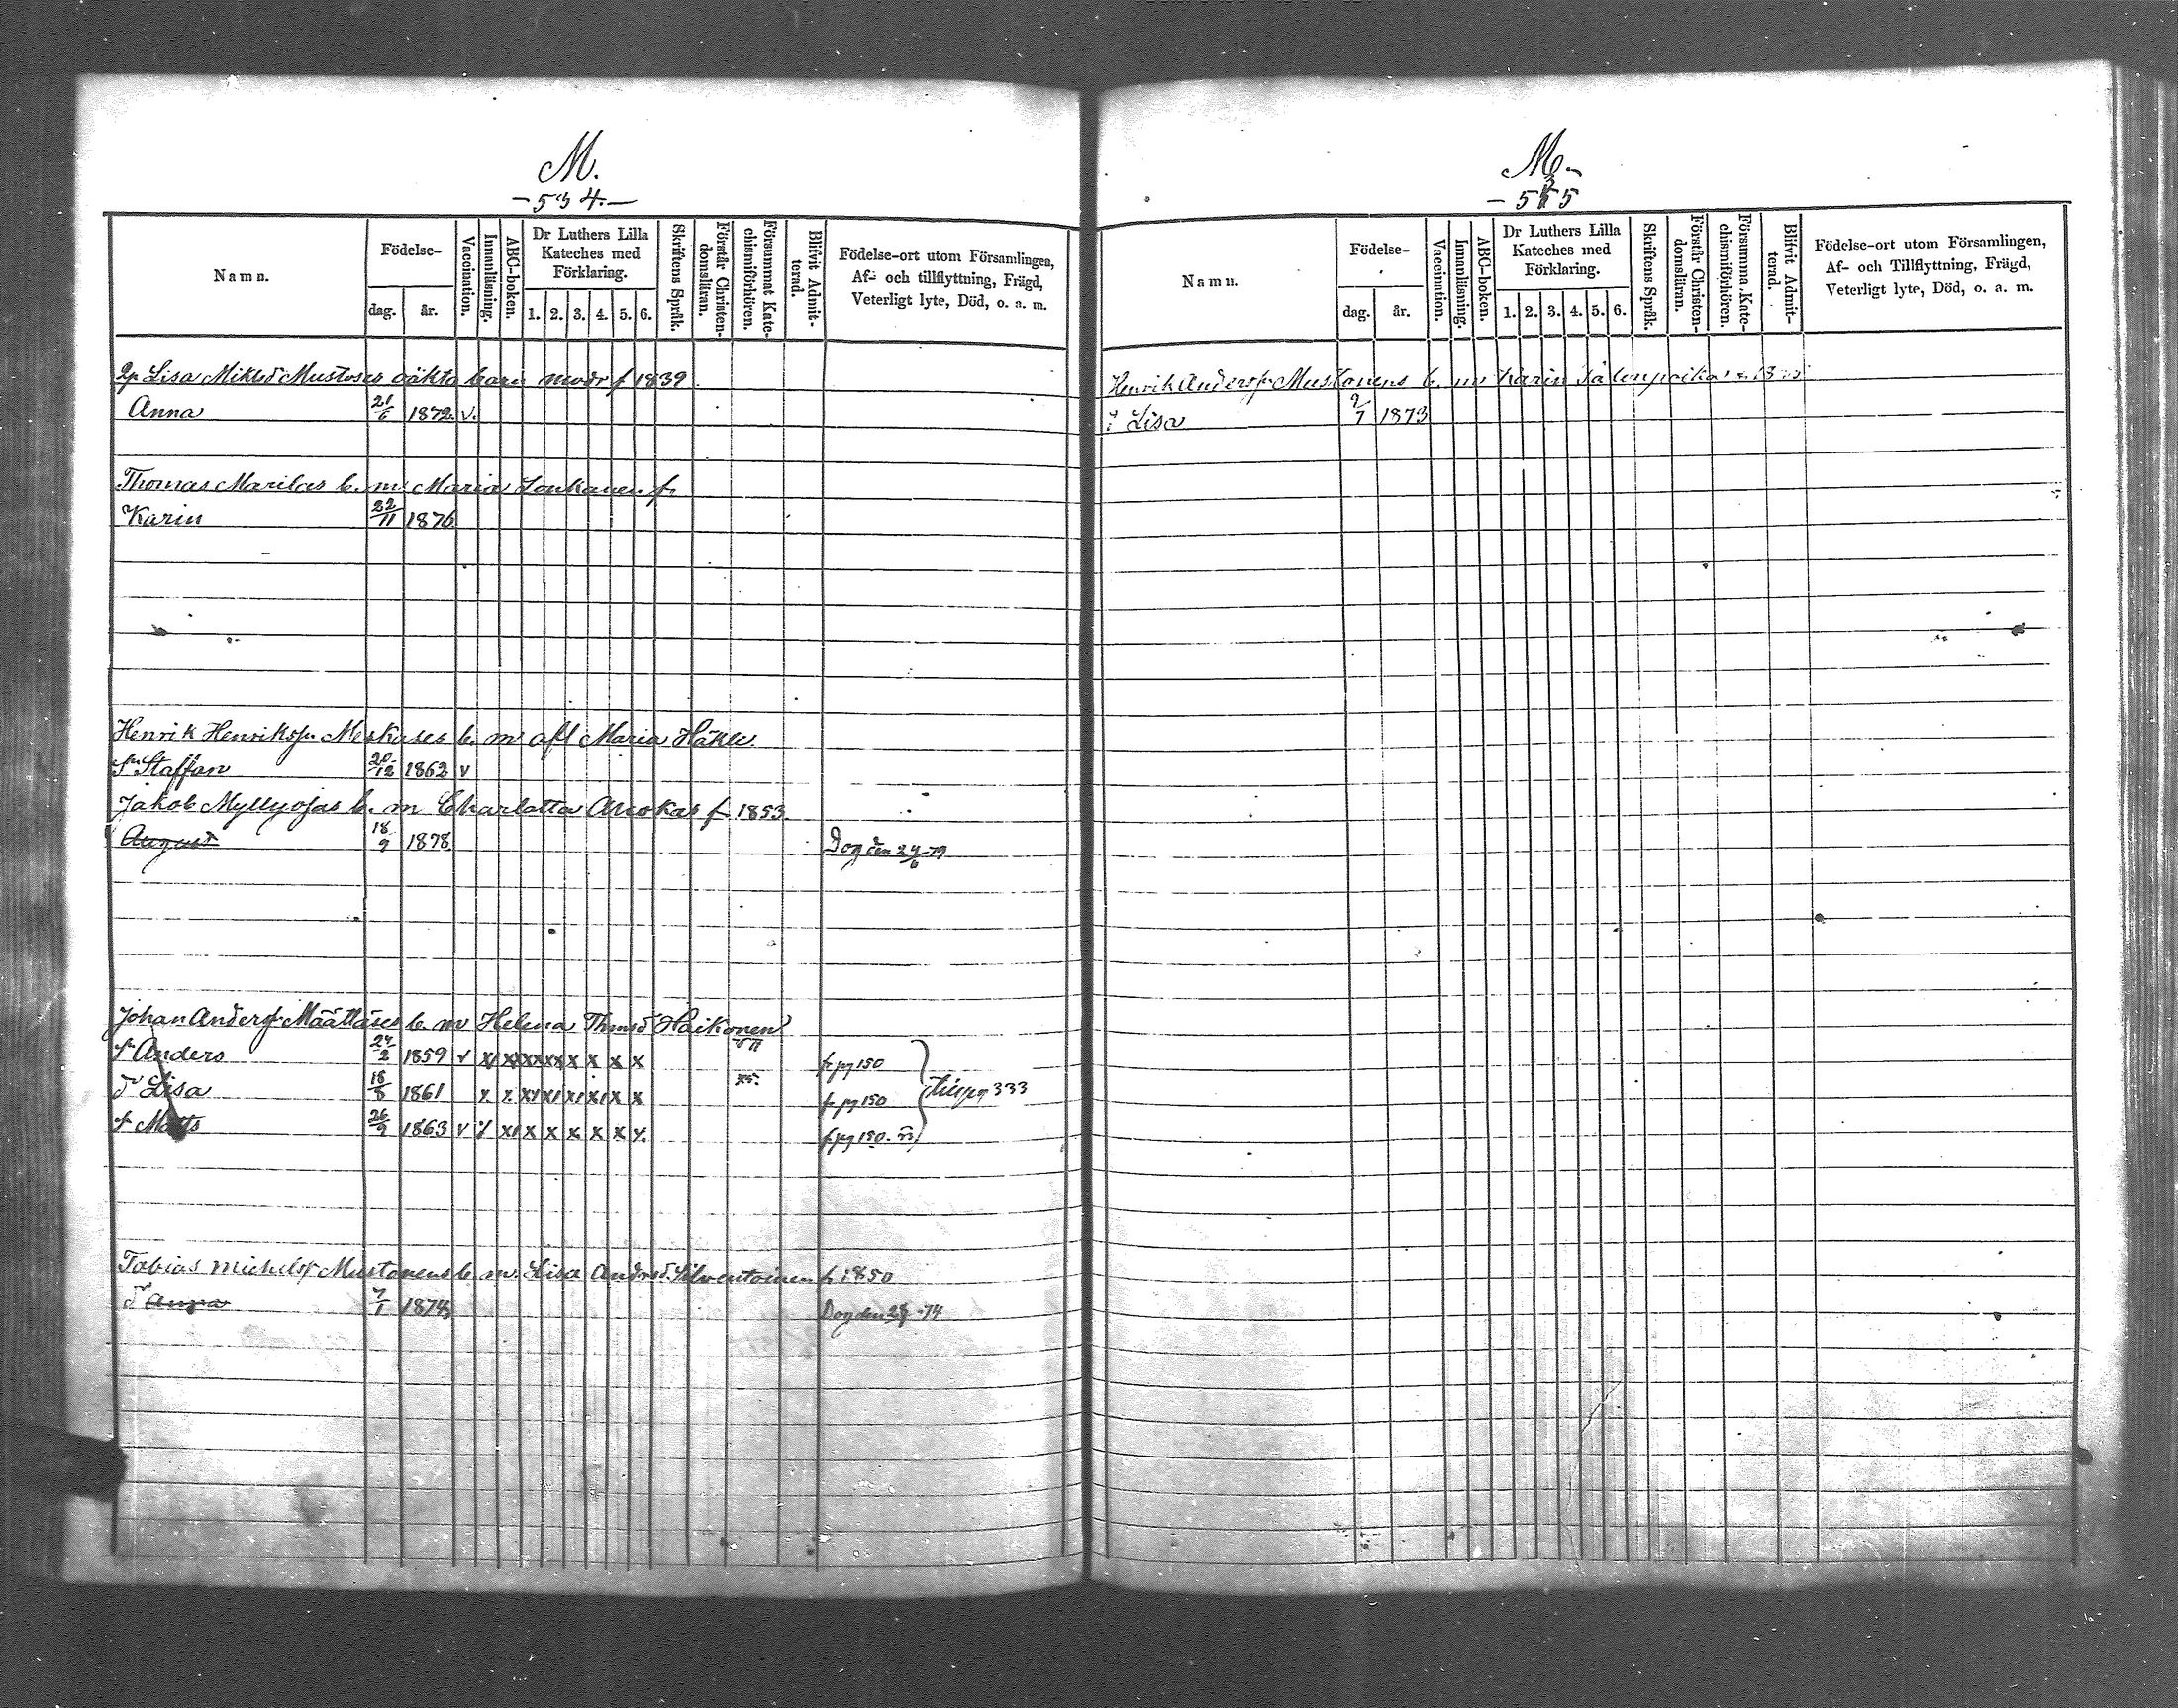 M.
-534.-
Namn.
Födelse-
dag. år.
Vaccination.
Innanläsning.
ABC-boken.
Dr Luthers Lilla Kateches med Förklaring.
1. 2. 3. 4. 5. 6.
Skriftens Språk.
Förstår Christendomsläran.
Försummat Katechismiförhören.
Blifvit Admitterad.
Födelse-ort utom Församlingen,
Af- och tillflyttning, Frägd,
Veterligt lyte, Död, o. a. m.
Lisa Miklsd oäkta barn modr f 1839
Anna 21/6 1872. v.
Thomas Marilas b. m. Maria f.
Karin 22/11 1876
Henrik Henriksn b. m afl Maria
Sn Staffan 20/12 1862 v
Jakob Myllyojas b. m Charlotta f 1853
August 18/9 1878 Dog den 24/6 79
Johan Andersn Määttäses b. m Helena Thmsd Haikonen
Anders 24/2 1859 v x x x x x x x x
f. pg 150
d Lisa 18/8 1861 x x x x x x x x
f pg 150
pg 333
Matts 26/9 1863 v x x x x x x x x
f. pg 150.
Tobias Michelsn Mustonens b. m. Lisa Andrsd. Silventoinen f 1850
d Anna 7/1 1874 Dog den -74
M.-
Namn.
Födelse-
dag. år.
Vaccination.
Innanläsning.
ABC-boken.
Dr Luthers Lilla Kateches med Förklaring.
1. 2. 3. 4. 5. 6.
Skriftens Språk.
Förstår Christendomsläran.
Försumma Katechismiförhören.
Blifvit Admitterad.
Födelse-ort utom Församlingen,
Af- och Tillflyttning, Frägd,
Veterligt lyte, Död, o. a. m.
Henrik Andersn Mustonens b. m Karin
Lisa 9/7 1873